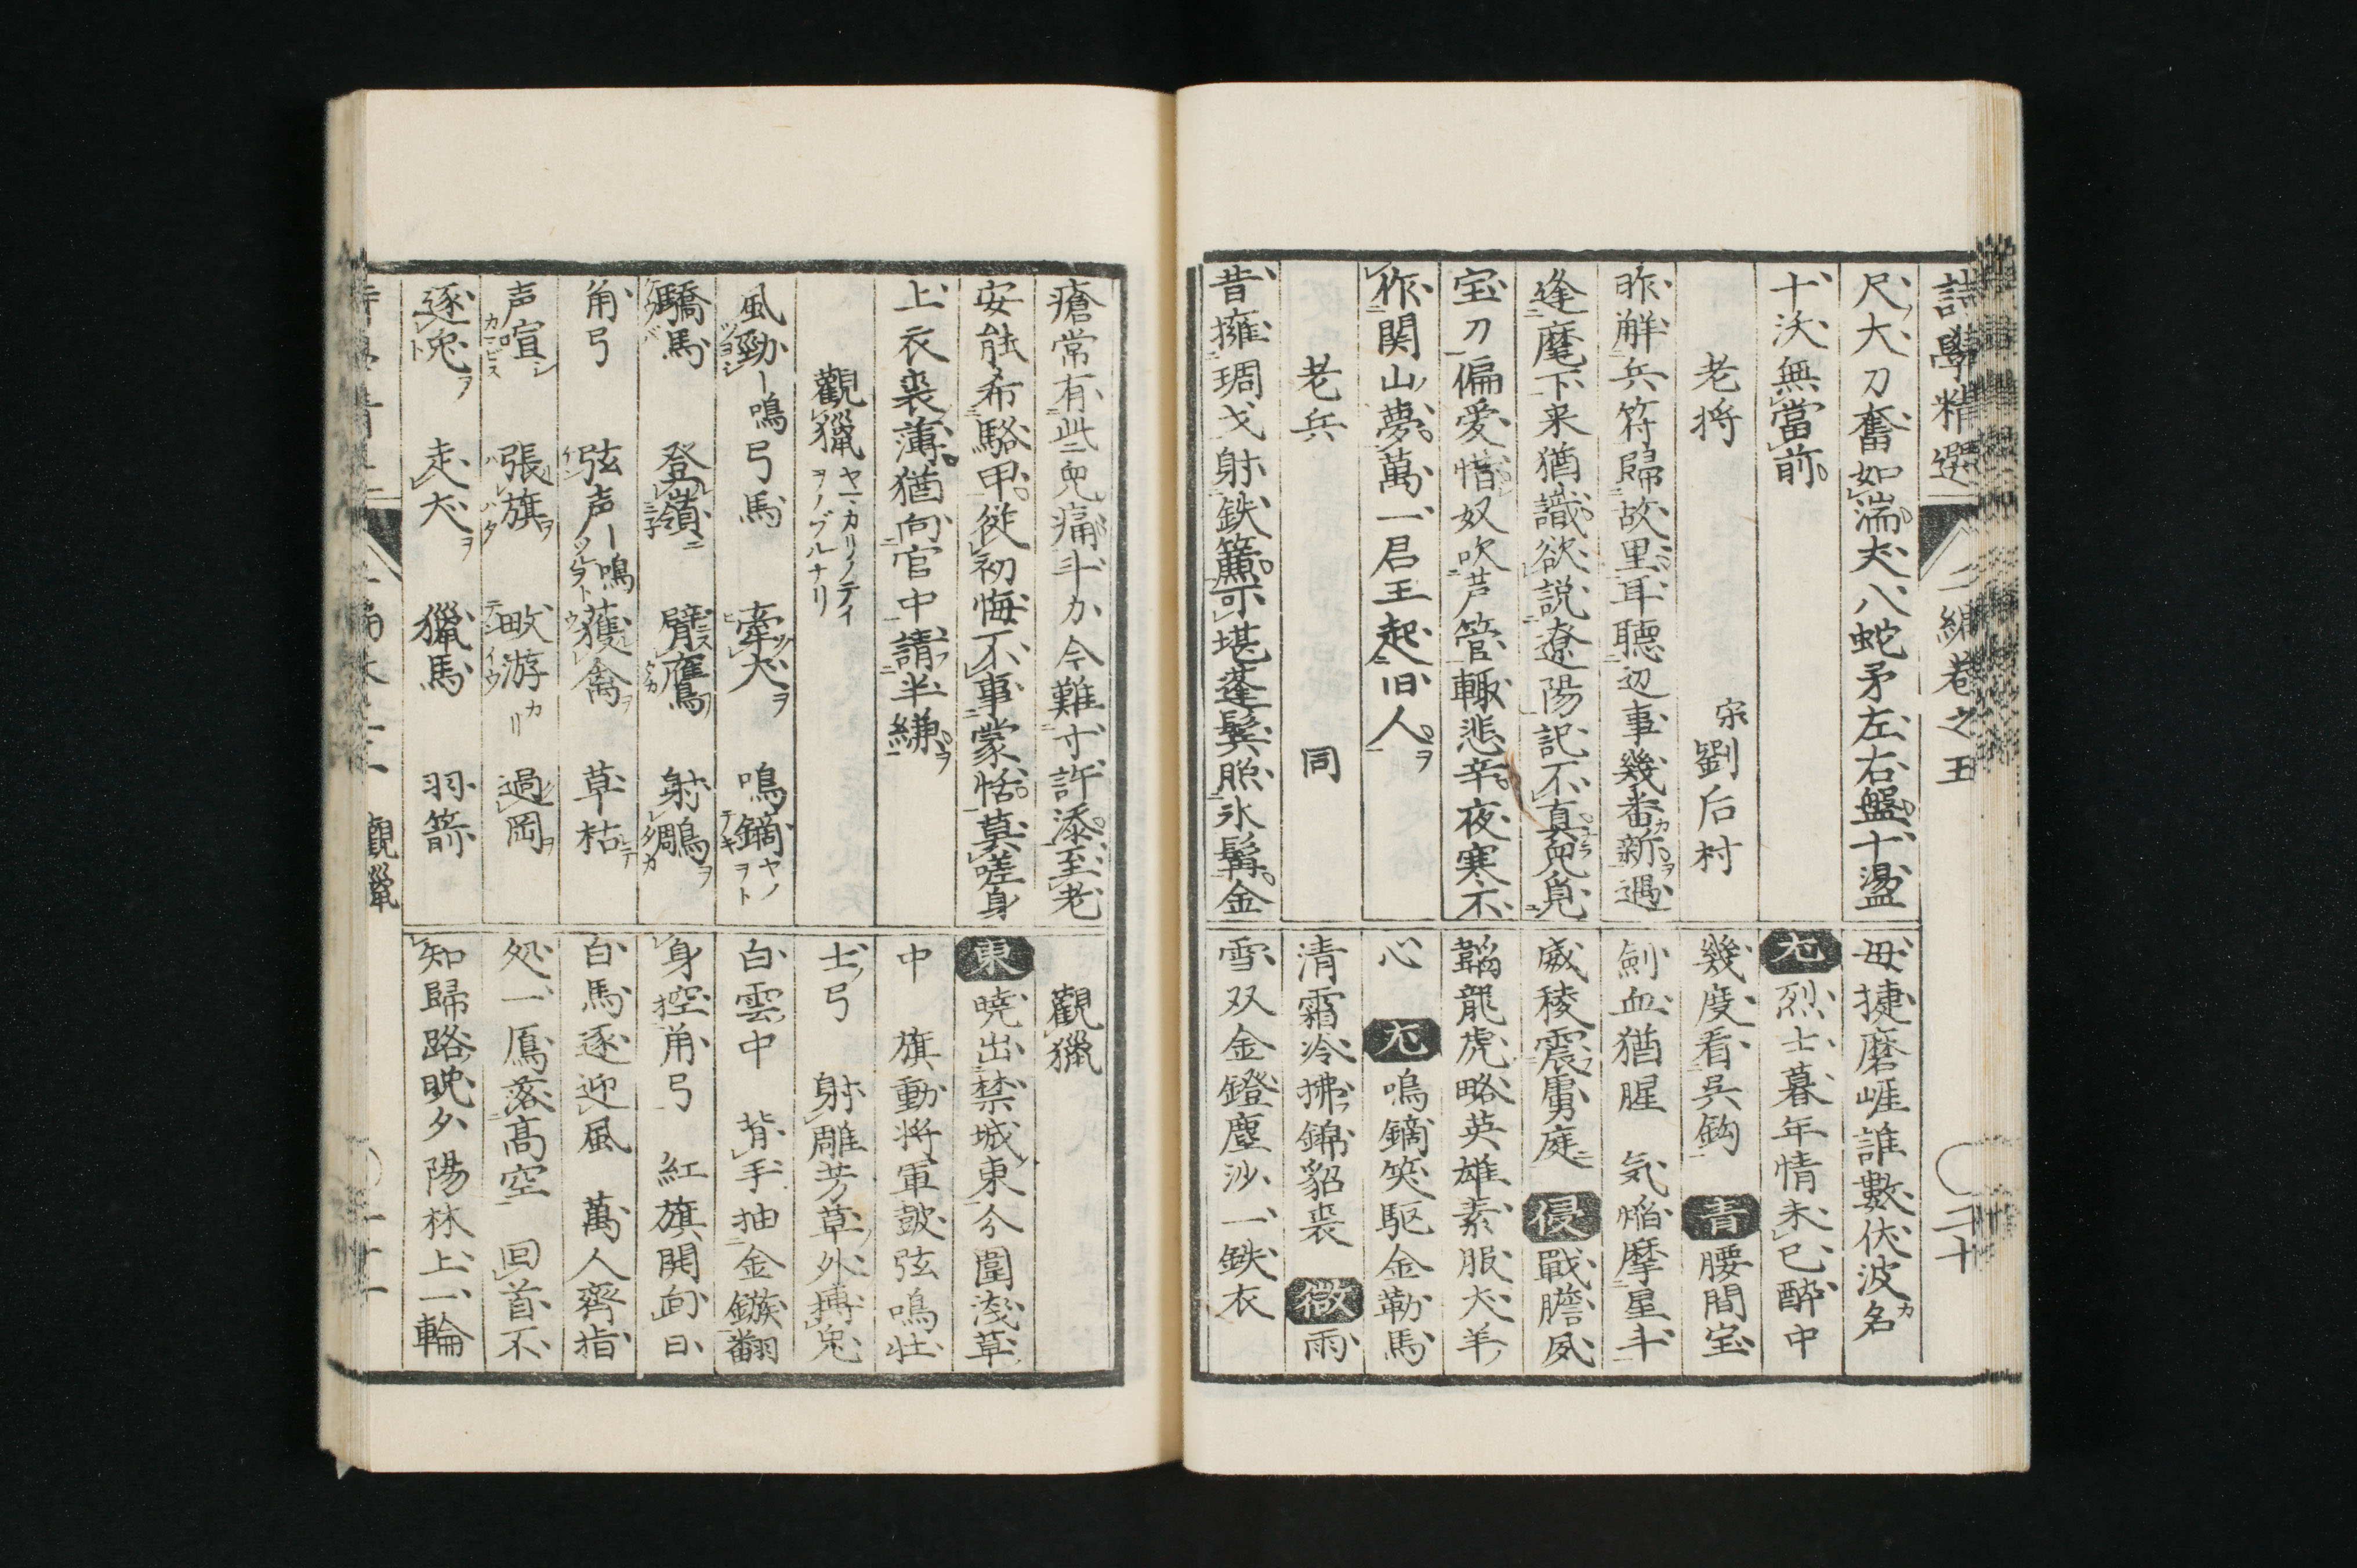 詩學精選 二編巻之五 二十
尺大刀奮如湍丈八蛇矛左右盤十盪
十决無當前
老将 宋劉后村
昨觧兵符歸故里耳聴辺事幾番新遇
逢麾下来猶識欲説遼陽記不真免覓
宝刀偏愛惜奴吹芦管輙悲辛夜寒不
作関山夢萬一君王起旧人
老兵 同
昔擁琱戈射鉄簾可堪蓬鬂照氷髯金
毋捷磨崕誰數伏波名
尤烈士暮年情未已酔中
幾度看呉鈎 青腰間宝
劍血猶腥 気焔摩星斗
威稜震虜庭 侵戰膽夙
韜龍虎略英雄素服犬羊
心 尤鳴鏑笑駆金勒馬
清霜冷拂錦貂裘 微雨
雪双金鐙塵沙一鉄衣
瘡常有些児痛斗力今難寸許添至老
安能希駱甲従初悔不事蒙恬莫嗟身
上衣裘薄猶向官中請半縑
觀獵 ヤマカリノテイヲノブルナリ
風勁ー鳴弓馬 牽犬 鳴鏑
驕馬 登嶺 臂鷹 射鵰
角弓 弦声ー鳴 獲禽 草枯
声喧 張旗 畋游 過岡
逐兎 走犬 獵馬 羽箭
觀獵
東曉出禁城東分圍浅草
中 旗動将軍皷弦鳴壮
士弓 射雕芳草外搏兎
白雲中 背手抽金鏃翻
身控角弓 紅旗開向日
白馬逐迎風 萬人齊指
処一鴈落髙空 回首不
知歸路晩夕陽林上一輪
觀獵